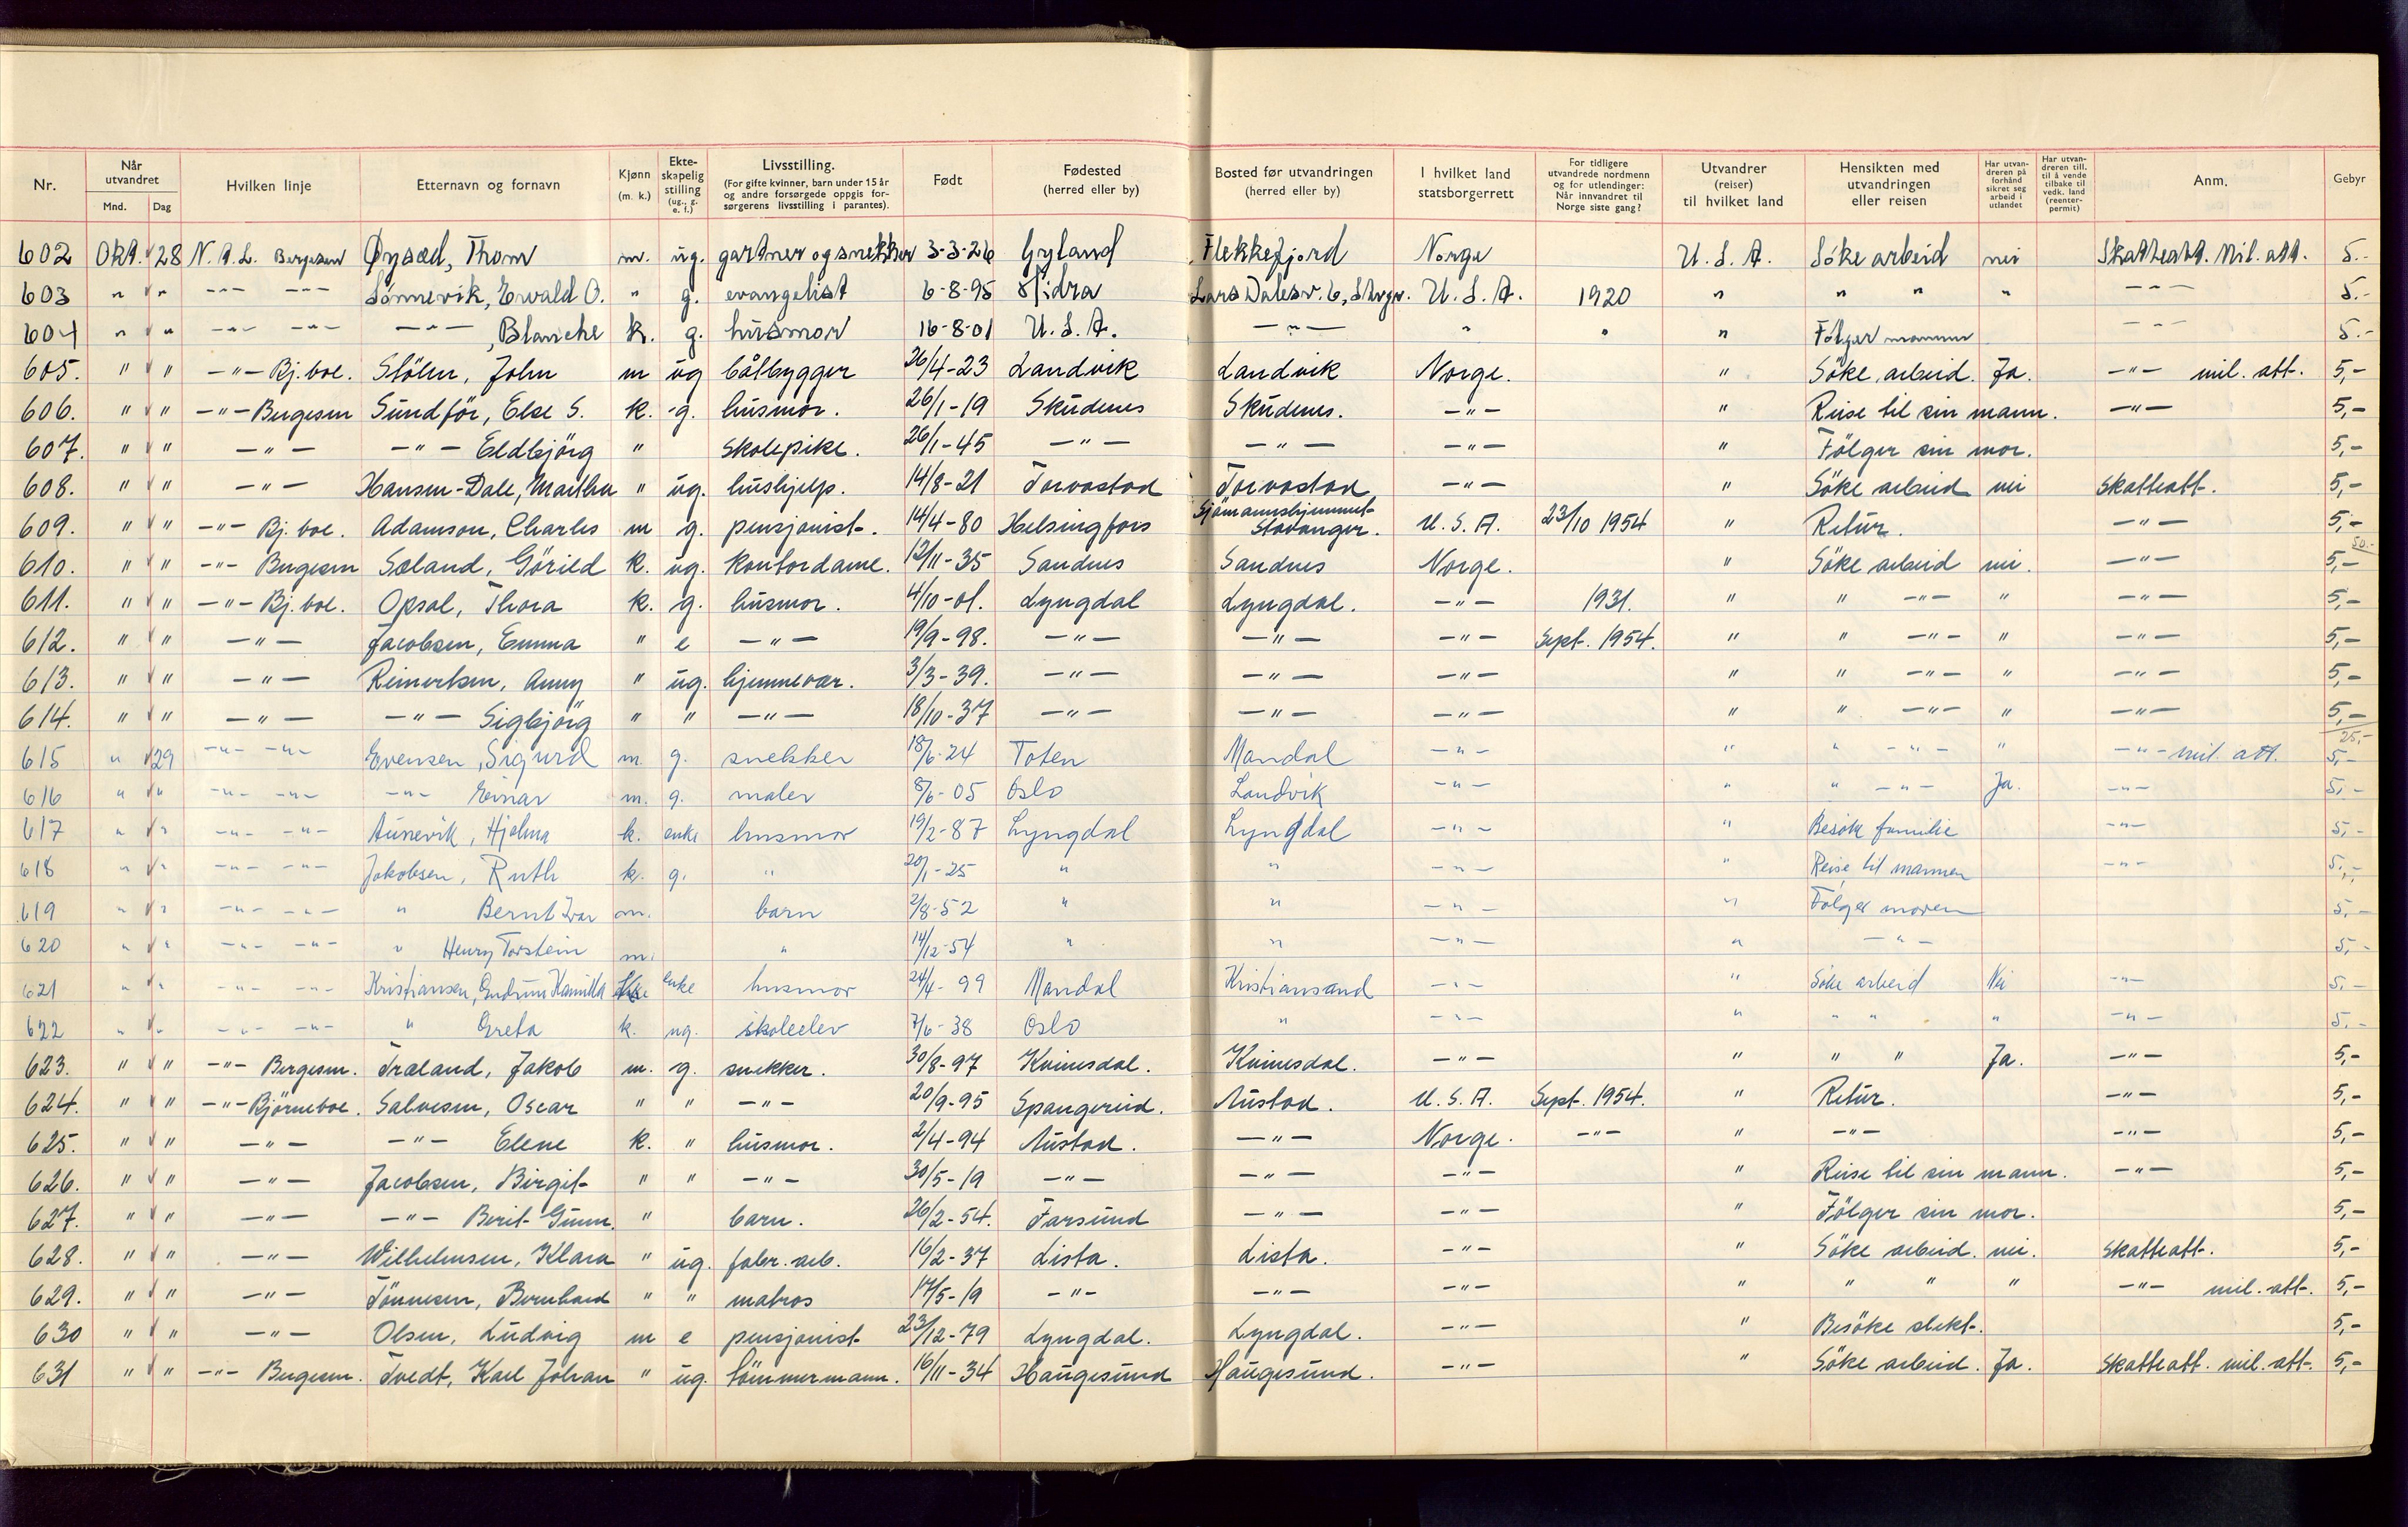 Nr. | Når utvandret Mnd. Dag | Hvilken linje | Etternavn og fornavn | Kjønn (m. k.) | Ekteskapelig stilling (ug., g. e. f.) | Livsstilling. (For gifte kvinner, barn under 15 år og andre forsørgede oppgis forsørgerens livsstilling i parantes). | Født | Fødested (herred eller by) | Bosted før utvandringen (herred eller by) | I hvilket land statsborgerrett | For tidligere utvandrede nordmenn og for utlendinger: Når innvandret til Norge siste gang? | Utvandrer (reiser) til hvilket land | Hensikten med utvandringen eller reisen | Har utvandreren på forhånd sikret seg arbeid i utlandet | Har utvandreren till. til å vende tilbake til vedk. land (reenterpermit) | Anm. | Gebyr
602 Okt. 28 N. A. L. Bergesen Øysæd, Thom m. ug. gartner og snekker 3-3-26 Gyland Flekkefjord Norge U. S. A. Söke arbeid nei Skatteatt. Mil. att. 5.-
603 " " -"- -"- Sønnevik, Ewald O. " g. evangelist 6-8-95 Hidra Lars Dalesv. 6, Stvgr. U. S. A. 1920 " " " " -"- 5.-
604 " " -"- -"- -"- , Blanche k. g. husmor 16-8-01 U. S. A. -"- " " " Følger mannen -"- 5.-
605. " " -"- Bj. boe. Stölen, John m ug båtbygger 26/4-23 Landvik Landvik Norge. " Söke arbeid. Ja. -"- mil. att. 5,-
606. " " -"- Bergesen Sundför, Else S. k. g. husmor. 26/1-19 Skudenes Skudenes. -"- " Reise til sin mann. -"- 5,-
607. " " -"- -"- Eldbjörg " skolepike. 26/1-45 -"- -"- -"- " Fölger sin mor. 5,-
608. " " -"- Hansen-Dale, Martha " ug. hushjelp. 14/8-21 Torvastad Torvastad -"- " Söke arbeid nei Skatteatt. 5,-
609. " " -"- Bj. boe. Adamson, Charles m g. pensjonist. 14/4-80 Helsingfors Sjömannshjemmet Stavanger. U. S. A. 23/10 1954 " Retur. -"- 5,-
50.-
610. " " -"- Bergesen Sæland, Görild k. ug. kontordame. 12/11-35 Sandnes Sandnes Norge. " Söke arbeid nei. -"- 5,-
611. " " -"- Bj. boe. Opsal, Thora k. g. husmor. 4/10-01. Lyngdal Lyngdal. -"- 1931. " " -"- " -"- 5,-
612. " " -"- Jacobsen, Emma " e -"- 19/9-98. -"- -"- -"- Sept. 1954. " " -"- " -"- 5,-
613. " " -"- Reinertsen, Anny " ug. hjemmevær. 3/3-39. -"- -"- -"- " " -"- " -"- 5,-
614. " " -"- -"- Sigbjörg " " -"- 18/10-37 -"- -"- -"- " " -"- " -"- 5,-
25,-
615 " 29 -"- -"- Evensen, Sigurd m. g. snekker 18/6-24 Toten Mandal -"- " " -"- " -"- mil. att. 5,-
616 " " -"- -"- -"- Einar m. g. maler 8/6-05 Oslo Landvik -"- " " -"- Ja. -"- 5,-
617 " " -"- -"- Aunevik, Hjelma k. enke husmor 19/2-87 Lyngdal Lyngdal -"- " Besøke familie -"- 5,-
618 " " -"- -"- Jakobsen, Ruth k. g. " 20/1-25 " " -"- " Reise til mannen -"- 5,-
619 " " -"- -"- " Bernt Ivar m. barn 2/8-52 " " -"- " Følger moren 5,-
620 " " -"- -"- " Henry Torstein m. " 14/12-54 " " -"- " -"- 5,-
621 " " -"- -"- Kristiansen, Gudrun Kamilla enke husmor 24/4-99 Mandal Kristiansand -"- " Söke arbeid Nei -"- 5,-
622 " " -"- -"- " Greta k. ug. skoleelev 7/6-38 Oslo " -"- " " " " -"- 5,-
623. " " -"- Bergesen. Træland, Jakob m. g. snekker. 30/8-97 Kvinesdal. Kvinesdal. -"- " " " Ja. -"- 5,-
624. " " -"- Björneboe. Salvesen, Oscar " " -"- 20/9-95 Spangereid. Austad. U. S. A. Sept. 1954. " Retur. -"- 5,-
625. " " -"- -"- Elene k. " husmor. 2/4-94 Austad. -"- Norge. -"- " -"- -"- 5,-
626. " " -"- Jacobsen, Birgit " " -"- 30/5-19 -"- -"- -"- " Reise til sin mann. -"- 5,-
627. " " -"- -"- Berit Gunn. " barn. 26/2-54. Farsund -"- -"- " Fölger sin mor. 5,-
628. " " -"- Wilhelmsen, Klara " ug. fabr. arb. 16/2-37 Lista. Lista. -"- " Söke arbeid. nei. Skatteatt. 5,-
629. " " -"- Tönnesen, Bernhard " " matros 17/5-19 -"- -"- -"- " " " " -"- mil. att. 5,-
630 " " -"- Olsen, Ludvig m e pensjonist 23/12-79 Lyngdal. Lyngdal. -"- " Besöke slekt. 5,-
631 " " -"- Bergesen. Tvedt, Karl Johan " ug. tömmermann. 16/11-34 Haugesund Haugesund. -"- " Söke arbeid. Ja. Skatteatt. mil. att. 5,-